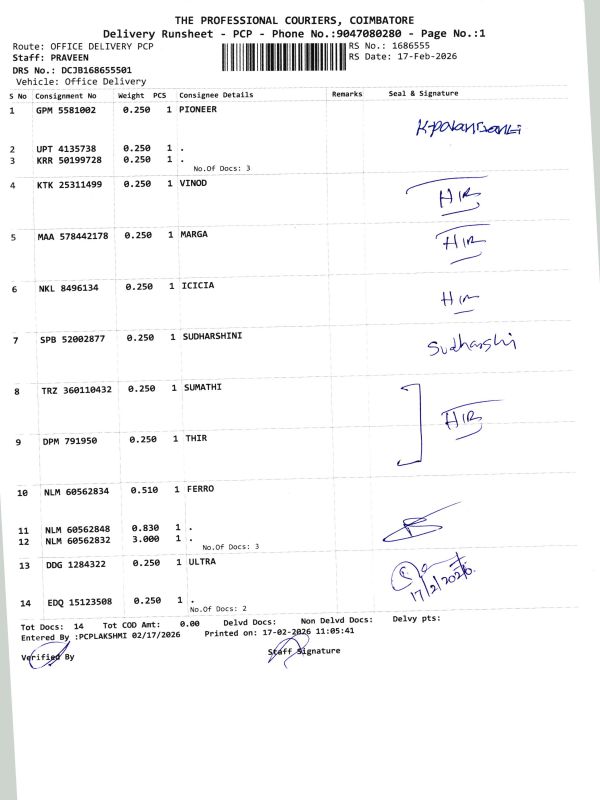 THE PROFESSIONAL COURIERS, COIMBATORE
Delivery Runsheet - PCP - Phone No.:9047080280 - Page No.:1
Route: OFFICE DELIVERY PCP RS No.: 1686555
Staff: PRAVEEN RS Date: 17-Feb-2026
DRS No.: DCJB168655501
Vehicle: Office Delivery
S No Consignment No Weight PCS Consignee Details Remarks Seal & Signature
1 GPM 5581002 0.250 1 PIONEER
2 UPT 4135738 0.250 1 .
3 KRR 50199728 0.250 1 .
No.Of Docs: 3
4 KTK 25311499 0.250 1 VINOD
5 MAA 578442178 0.250 1 MARGA
6 NKL 8496134 0.250 1 ICICIA
7 SPB 52002877 0.250 1 SUDHARSHINI Sudharshi
8 TRZ 360110432 0.250 1 SUMATHI
9 DPM 791950 0.250 1 THIR
10 NLM 60562834 0.510 1 FERRO
11 NLM 60562848 0.830 1 .
12 NLM 60562832 3.000 1 .
No.Of Docs: 3
13 DDG 1284322 0.250 1 ULTRA
17/2/2026
14 EDQ 15123508 0.250 1 .
No.Of Docs: 2
Tot Docs: 14 Tot COD Amt: 0.00 Delvd Docs: Non Delvd Docs: Delvy pts:
Entered By :PCPLAKSHMI 02/17/2026 Printed on: 17-02-2026 11:05:41
Verified By Staff Signature